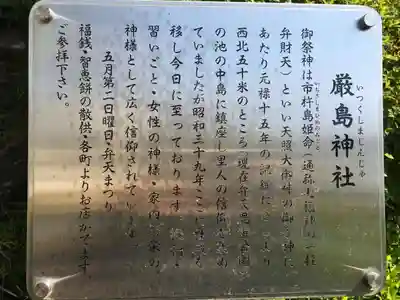 厳島神社
いつくしまじんじゃ
御祭神は市杵島姫命(通称
いちきしまひめのみこと
弁財天)といい天照大御神の御
あたり元禄十五年の
西北五十米のところ(現在弁天
の池の中島に鎮座し里人の信仰を
ていましたが昭和三十九年ここに
移し今日に至っております
習いごと・女性の神様・家内
神様として広く信仰されています
五月第二日曜日・弁天まつり
福銭・智恵餅の散供・各町よりお店がでます。
ご参拝下さい。